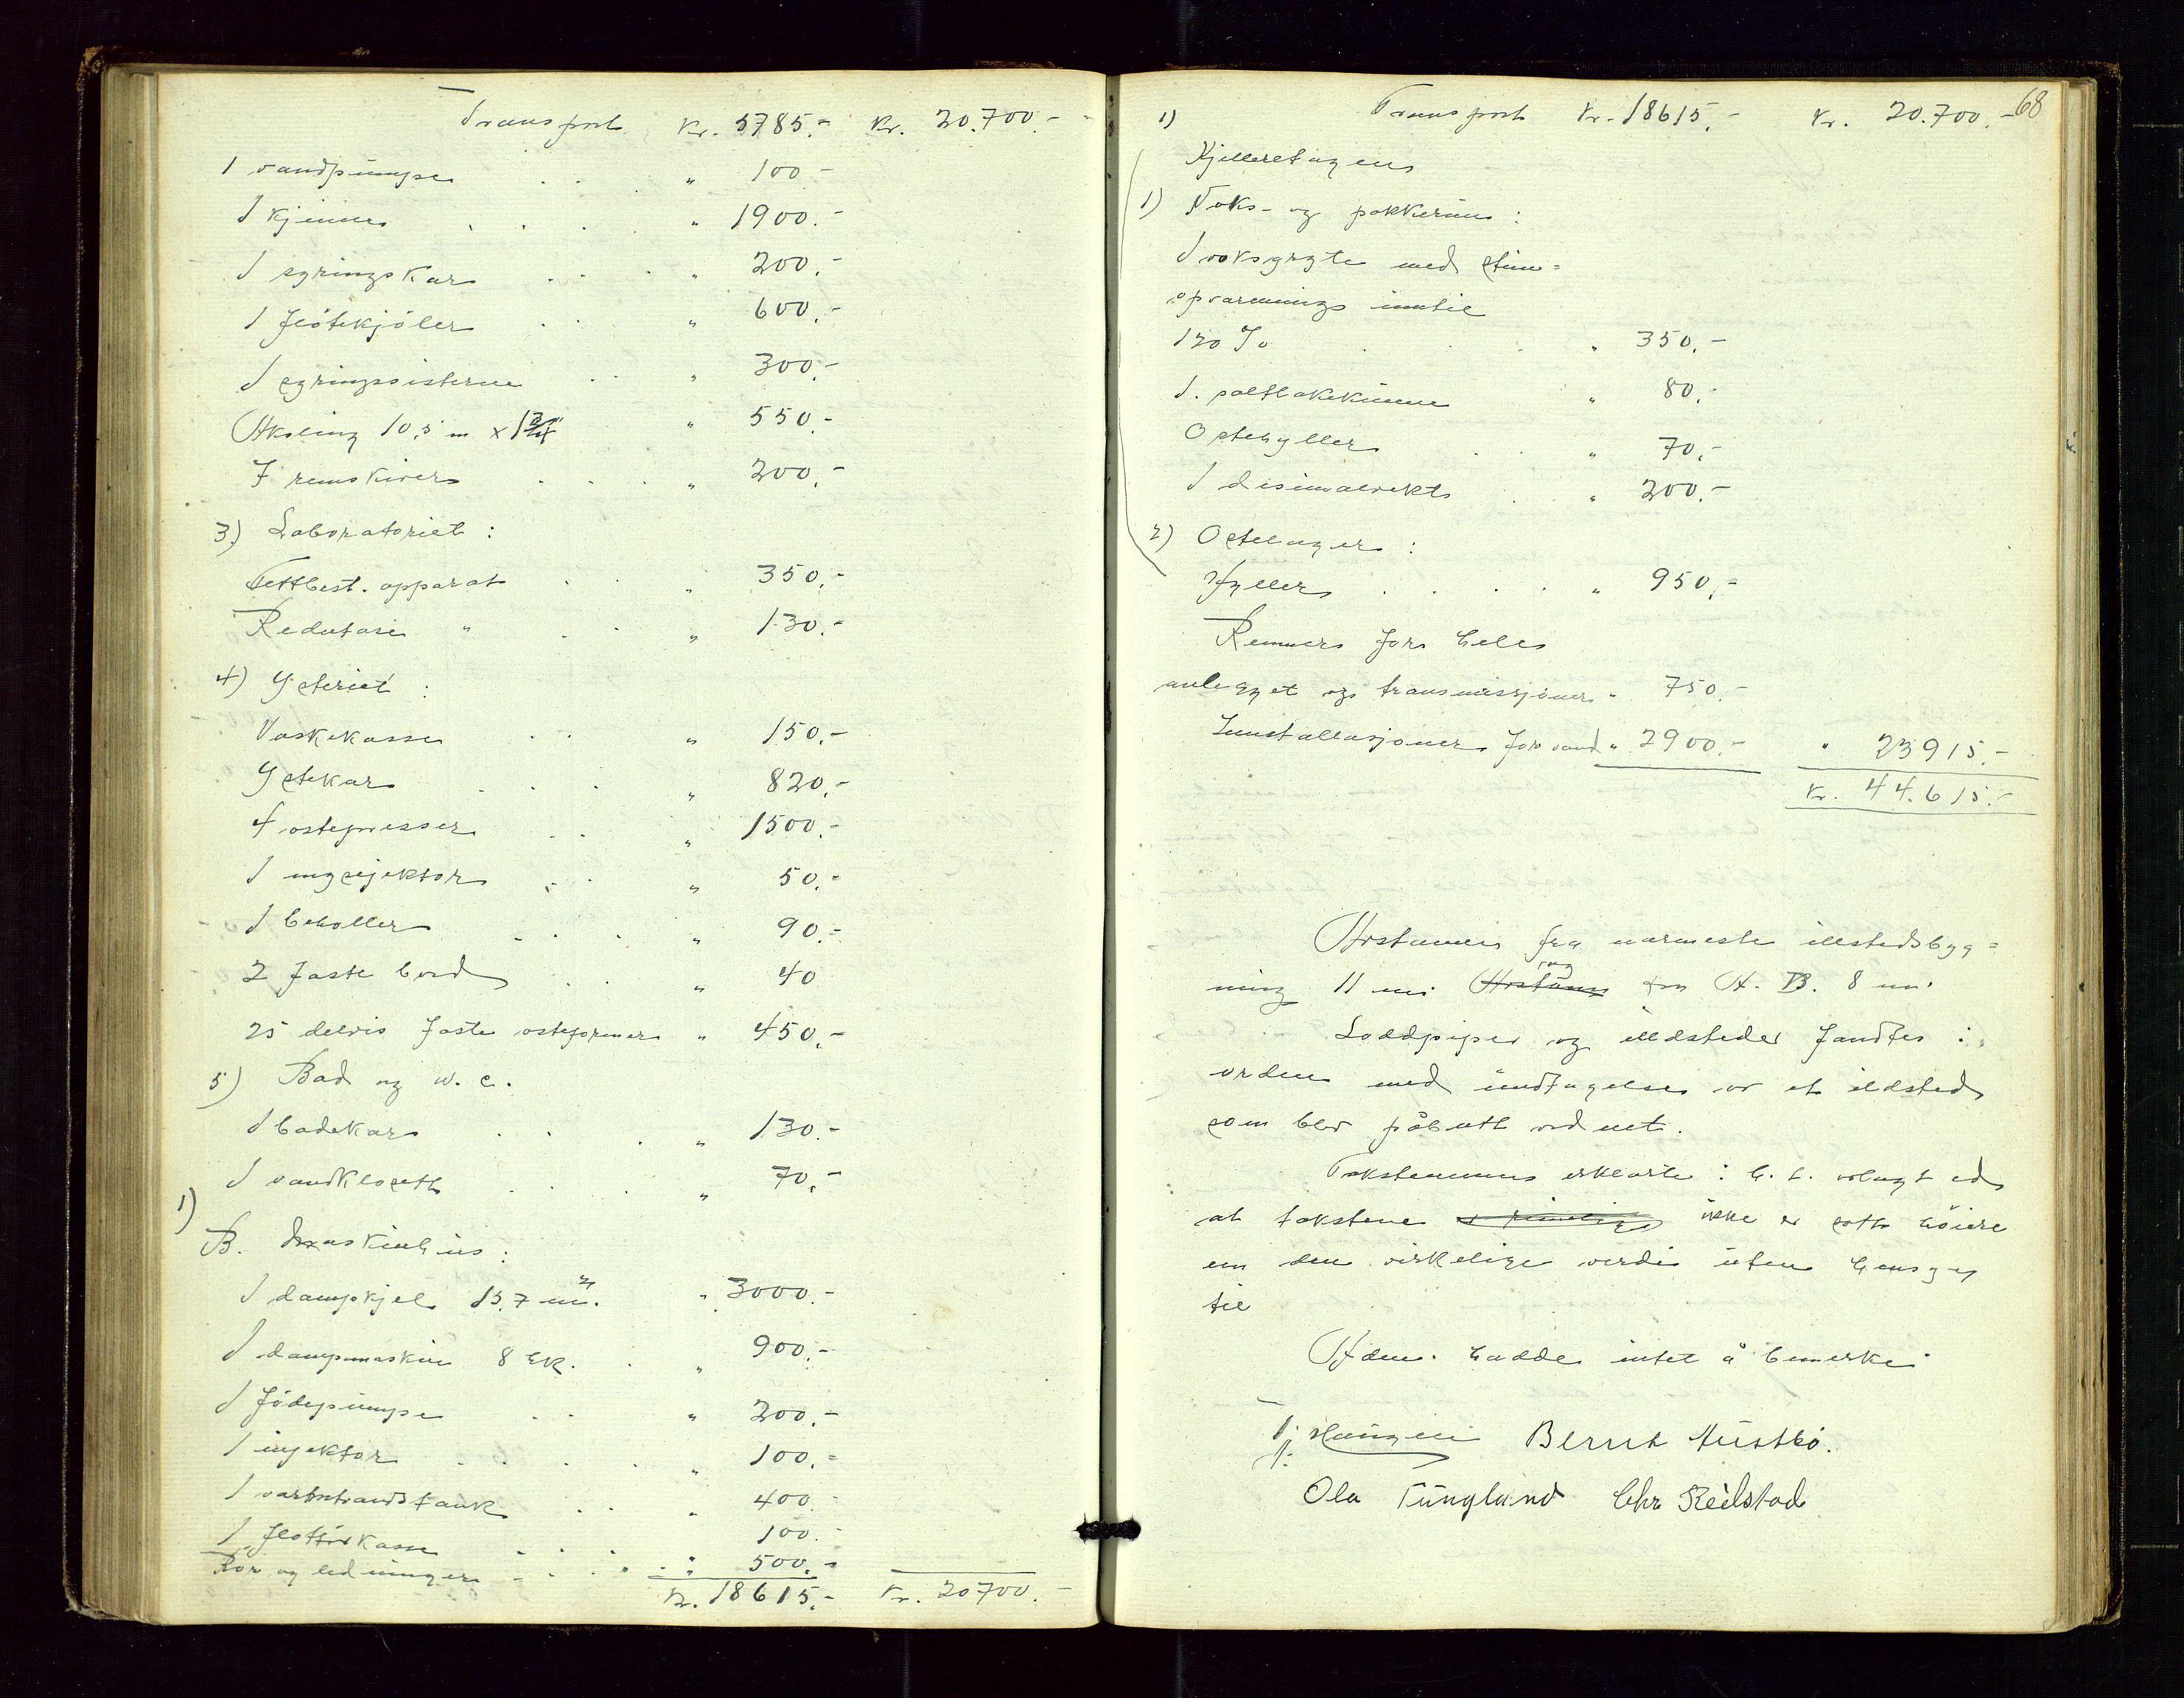 Transport Kr. 5785.- Kr. 20.700.-
1 vandpumpe . . " 100 -
1 kjinne . . . . " 1900.-
1 syringskar . . . " 200.-
1 fløtekjøler . . " 600.-
1 syringscisterne . . " 300.-
Aksling 10,5 m x 1 3/4" " 550.-
7 remskiver . . . . " 200.-
3) Laboratoriet :
Fettbest. apparat . . " 350.-
Redutase " . . " 130.-
4) Ysteriet :
Vaskekasse . . " 150.-
Ystekar . . . " 820.-
4 ostepresser . . " 1500.-
1 mysejektor . . " 50.-
1 beholler . . . " 90.-
2 faste bord . . " 40
25 delvis faste osteformer " 450.-
5) Bad og w. c.
1 badekar . . . " 130.-
1 vandklosett . . . " 70.-
1)
B. Maskinhus :
1 dampkjel 15,7 m². " 3000.-
1 dampmaskin 8 HK. . " 900.-
1 fødepumpe . . " 200.-
1 injektor . . . . " 100.-
1 varmtvandstank . . " 400.-
1 kasse . . . 100.-
Rør og ledninger . . . . " 500.-
Kr. 18615.- Kr. 20700.-
68
1) Transport Kr. 18615.- Kr. 20.700.-
Kjelleretagen
1) Voks- og pakkerum :
1 voksgryte med stim=
opvarmning inntil
120 % . . . " 350.-
1. saltlakekumme " 80.-
Ostehyller . . " 70.-
1 desimalvekt . " 200.-
2) Ostelager :
Hyller . . . . " 950.-
Remmer for hele
anlegget og transmissjoner " 750.-
Innstallasjoner for vand " 2900.- " 23915.-
Kr. 44.615.-
Avstanden fra nærmeste illstedsbyg=
ning 11 m. Avstann fra A. B. 8 m.
Loddpiper og illdsteder fandtes i
orden med undtagelse av et ildsted
som blev påbutt ordnet.
Takstemennene erklærte i h. t. avlagt ed
at takstene er rimelige ikke er satt höiere
enn den virkelige verdi uten hensyn
til
Adm. hadde intet å bemerke
Bernt Austbö.
Ola Tungland Chr Reilstad